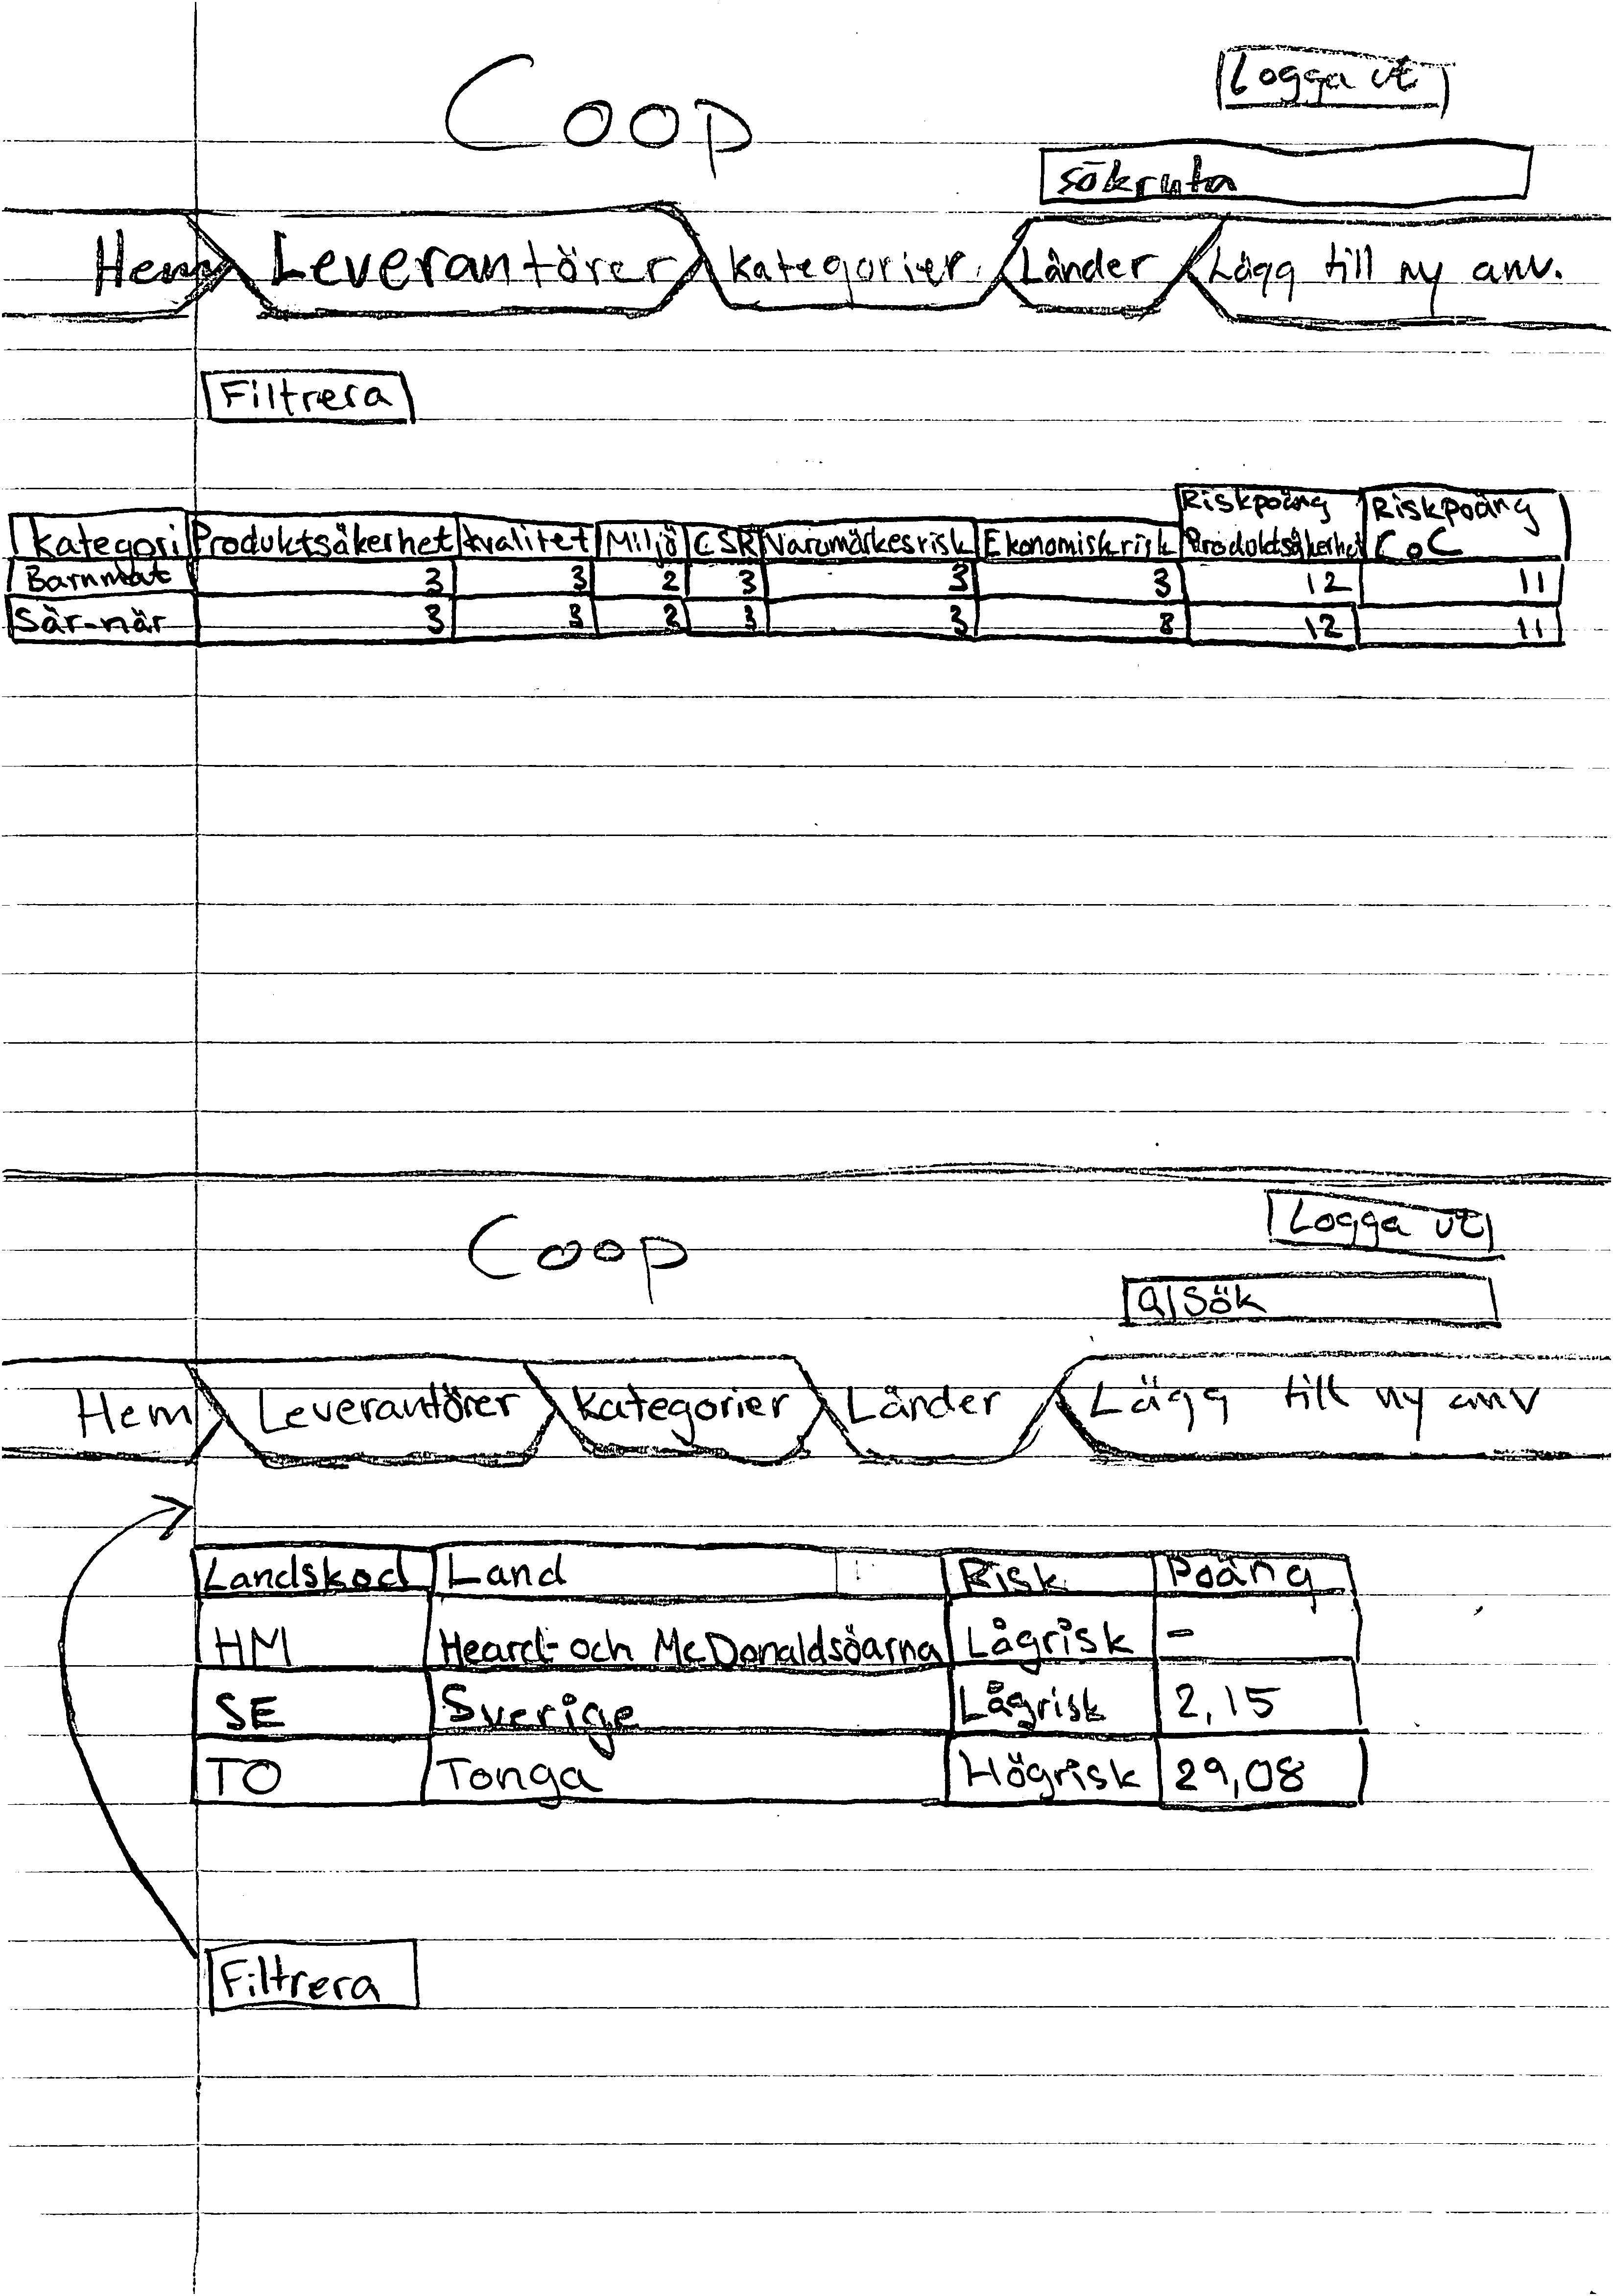 Coop
Logga ut
Sökruta
Hem Leverantörer Kategorier Länder Lägg till ny anv.
Filtrera
Kategori Produktsäkerhet Kvalitet Miljö CSR Varumärkesrisk Ekonomisk risk Riskpoäng Produktsäkerhet Riskpoäng CoC
Barnmat 3 3 2 3 3 3 12 11
Sär-när 3 3 2 3 3 3 12 11
Coop
Logga ut
Sök
Hem Leverantörer Kategorier Länder Lägg till ny anv
Landskod Land Risk Poäng
HM Heard- och McDonaldsöarna Lågrisk -
SE Sverige Lågrisk 2,15
TO Tonga Högrisk 29,08
Filtrera